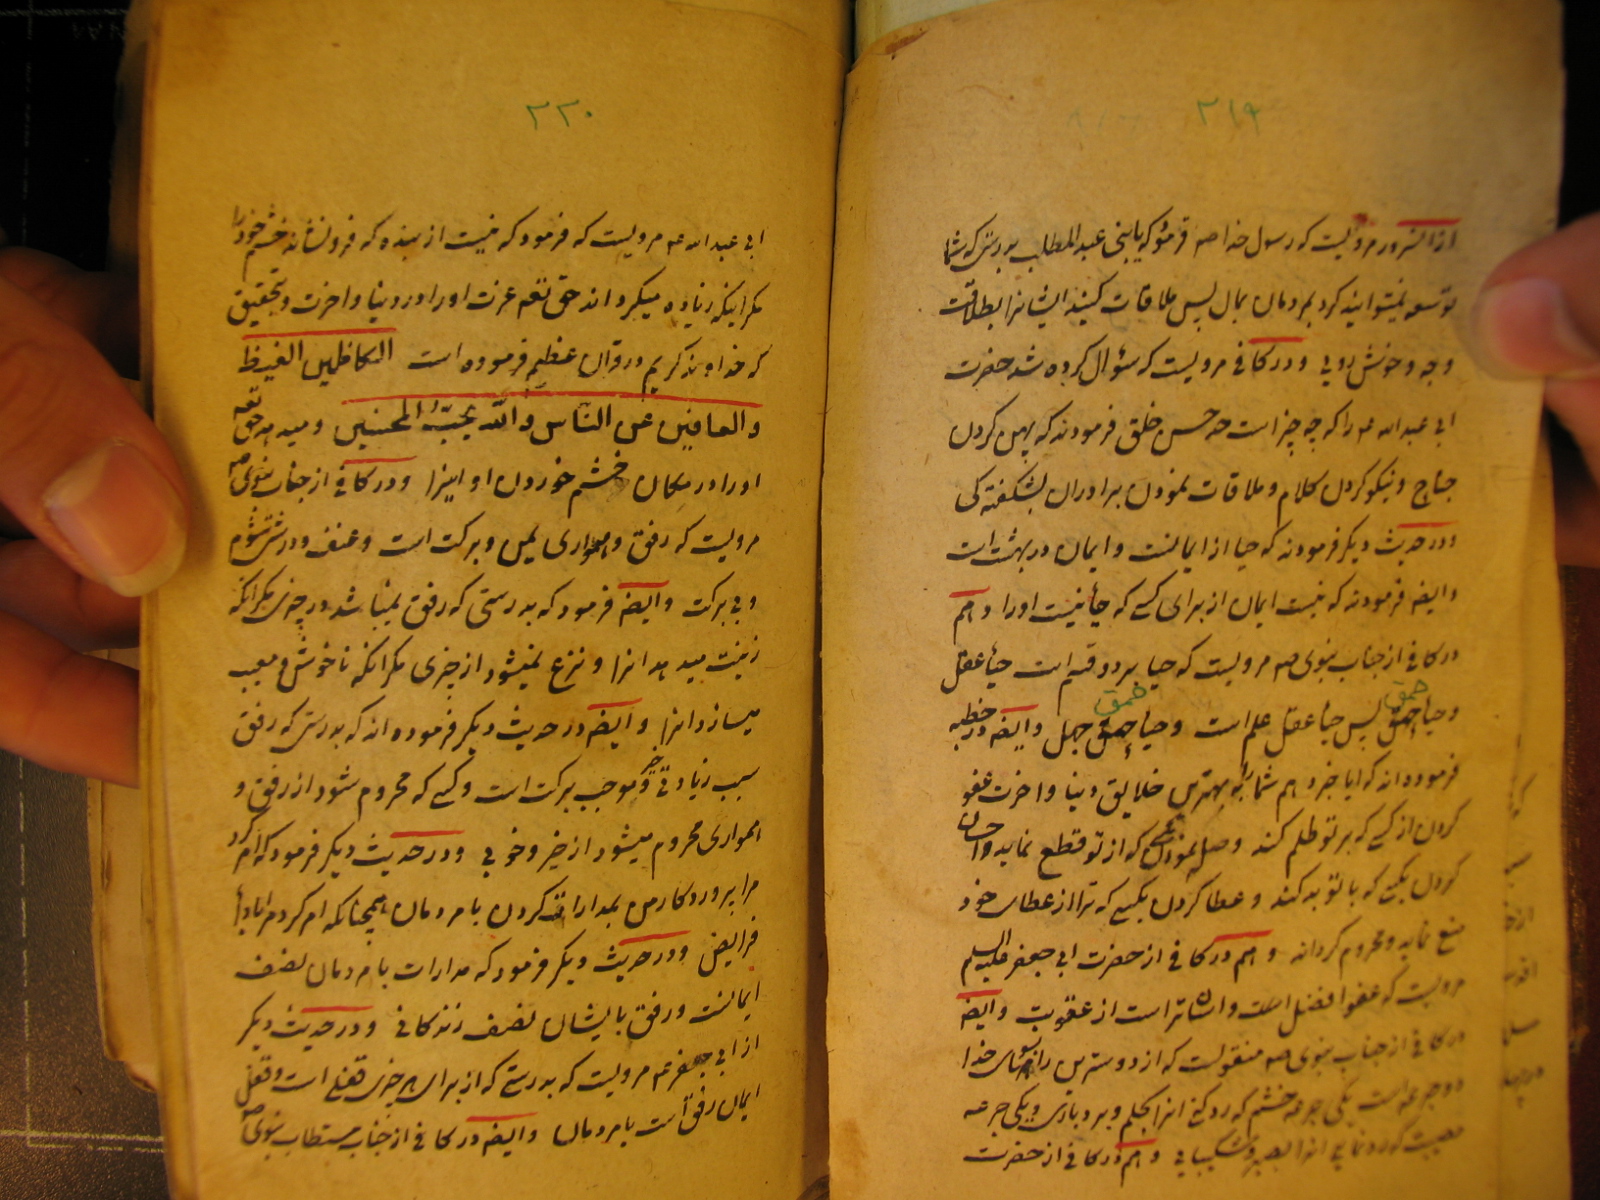 ۲۱۹
از آنسرور مرویست که رسول خدا صه فرمود که یا بنی عبد المطلب بدرستی که شما
توسعه نمیتوانید کرد بمردمان بمال پس ملاقات کنید ایشانرا بطلاقت
وجه و خوش رویی و در کافی مرویست که سؤال کرده شد حضرت
ابی عبد الله عه را که چه چیز است حد حسن خلق فرمودند که پهن کردن
جناح و نیکو کردن کلام و ملاقات نمودن برادران بشکفته کی
و در حدیث دیگر فرمودند که حیا از ایمانست و ایمان در بهشت است
و ایضه فرمودند که نیست ایمان از برای کسی که حیأ نیست او را و هم
در کافی از جناب نبوی صه مرویست که حیا بر دو قسم است حیأ عقل
و حیأ حمق پس حیأ عقل علم است و حیأ حمق جهل و ایضه در خطبه
فرموده اند که ایا خبر دهم شما را به بهترین خلایق دنیا و اخرت عفو
کردن از کسی که بر تو ظلم کند و وصل نمودن که از تو قطع نماید و احسان
کردن بکسی که با تو بد کند و عطا کردن بکسی که ترا از عطای خود
منع نماید و محروم گرداند و هم در کافی از حضرت ابی جعفر علیه السلم
مرویست که عفو افضل است و اسانتر است از عقوبت و ایضه
در کافی از جناب نبوی صه منقولست که از دوسترین راههای خدا
دو جرعه است یکی جرعه خشم که رد کنی انرا بحلم و بردباری و یکی جرعه
مصیبت که رد نمایی انرا بصبر و شکیبایی و هم در کافی از حضرت
۲۲۰
ابی عبد الله عه مرویست که فرمود که نیست از بنده که فرو نشاند خشم خود را
مگر اینکه زیاده میگرداند حق تعه عزت او را در دنیا و اخرت و بتحقیق
که خداوند کریم در قران عظیم فرموده است الکاظمین الغیظ
والعافین عن الناس والله یحب المحسنین و میدهد حق تعه
او را در مکان خشم خوردن او اینرا و در کافی از جناب نبوی صه
مرویست که رفق و همواری یمن و برکت است و عنف و درشتی شوم
و بی برکت و ایضه فرمود که بدرستی که رفق نمیباشد در چیزی مگر انکه
زینت میدهد انرا و نزع نمیشود از چیزی مگر انکه ناخوش و معیب
میسازد انرا و ایضه در حدیث دیگر فرموده اند که بدرستی که رفق
سبب زیادتی و موجب برکت است و کسی که محروم شود از رفق و
همواری محروم میشود از خیر و خوبی و در حدیث دیگر فرمود که امر کرد
مرا پروردکار من بمدارا کردن با مردمان همچنانکه امر کرد مرا بادأ
فرایض و در حدیث دیگر فرمود که مدارات با مردمان نصف
ایمانست و رفق بایشان نصف زندکانی و در حدیث دیگر
از ابی جعفر عه مرویست که بدرستی که از برای هر چیزی قفلی است و قفل
ایمان رفق است با مردمان و ایضه در کافی از جناب مستطاب نبوی صه